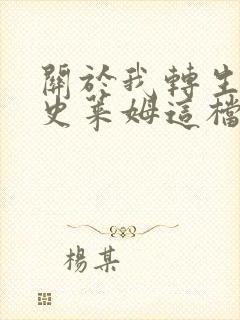 關於我轉生
史萊姆這檔
楊某